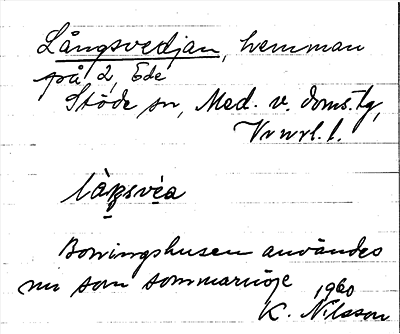 Långsvedjan, hemman
på 2, Ede
Stöde sn, Med. v. doms.tg,
Vnrl. l.
làŋsvèa
Boningshusen användes
nu som sommarnöje
1960
K. Nilsson